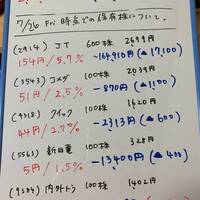 7/26 Fri 時点での保有株について。
(2914) JT 600株 2699円
154円/5.7% -164,910円(▲17,100)
(3543) コメダ 100株 2039円
51円/2.5% -870円(▲1100)
(4318) クイック 100株 1620円
44円/2.7% -2313円(▲600)
(5563) 新日電 100株 328円
5円/1.5% -13400円(▲400)
(9384) 内外トラ 100株 1402円